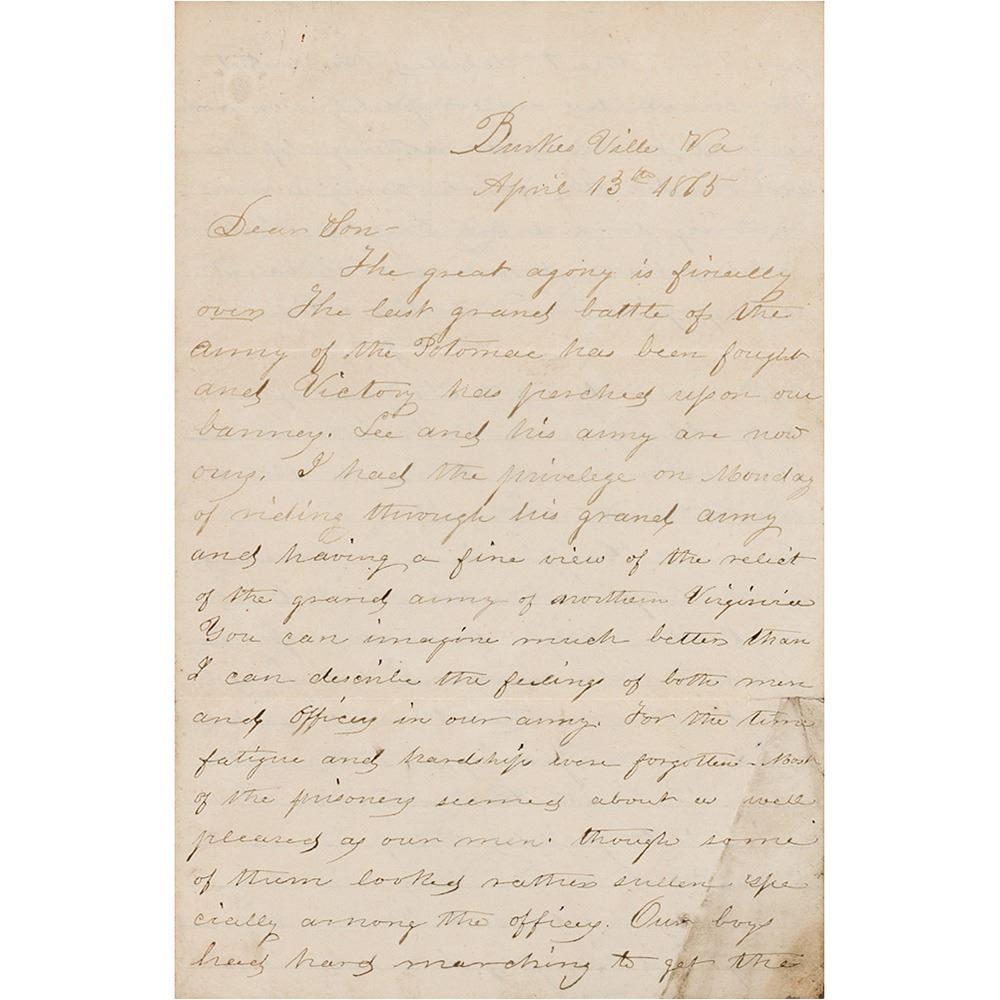 Burkes Ville Va
April 13th 1865
Dear Son-
The great agony is finally
over The last grand battle of the
army of the Potomac has been fought
and Victory has perched upon our
banners. Lee and his army are now
ours. I had the privelege on Monday
of riding through his grand army
and having a fine view of the relict
of the grand army of northern Virginia
You can imagine much better than
I can describe the feelings of both men
and officers in our army. For the time
fatigue and hardship were forgotten - Most
of the prisoners seemed about as well
pleased as our men. though some
of them looked rather sullen 'spe
cially among the officers. Our boys
had hard marching to get the